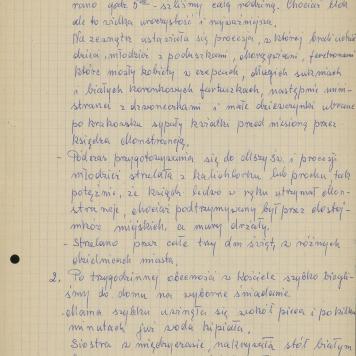 rano godz 5ta - szliśmy całą rodziną. Chociaż tłok
ale to wielka uroczystość i najważniejsza.
Na zewnątrz ustawiała się procesja, w której brali udział
dzieci, młodzież z poduszkami, chorągwiami, feretronami
które niosły kobiety w czepcach, długich sukniach
i białych koronkowych fartuszkach, następnie mini-
stranci z dzwoneczkami i małe dziewczynki ubrane
po krakowsku sypały kwiatki przed niesioną przez
księdza Monstrancją.
- Podczas przygotowywania się do Mszy Św. i procesji
młodzież strzelała z kalichlorku lub prochu tak
potężnie, że ksiądz ledwo w ręku utrzymał Mon-
strancję, chociaż podtrzymywany był przez dostoj-
ników miejskich, a mury drżały.
- Strzelano przez całe trzy dni świąt, z różnych
dzielnicach miasta.
2. Po trzygodzinnej obecności w Kościele szybko biegli-
śmy do domu na wyborne śniadanie.
- Mama szybko uwinęła się wokół pieca i po kilku
minutach już woda kipiała.
Siostra w międzyczasie, nakrywała stół białym